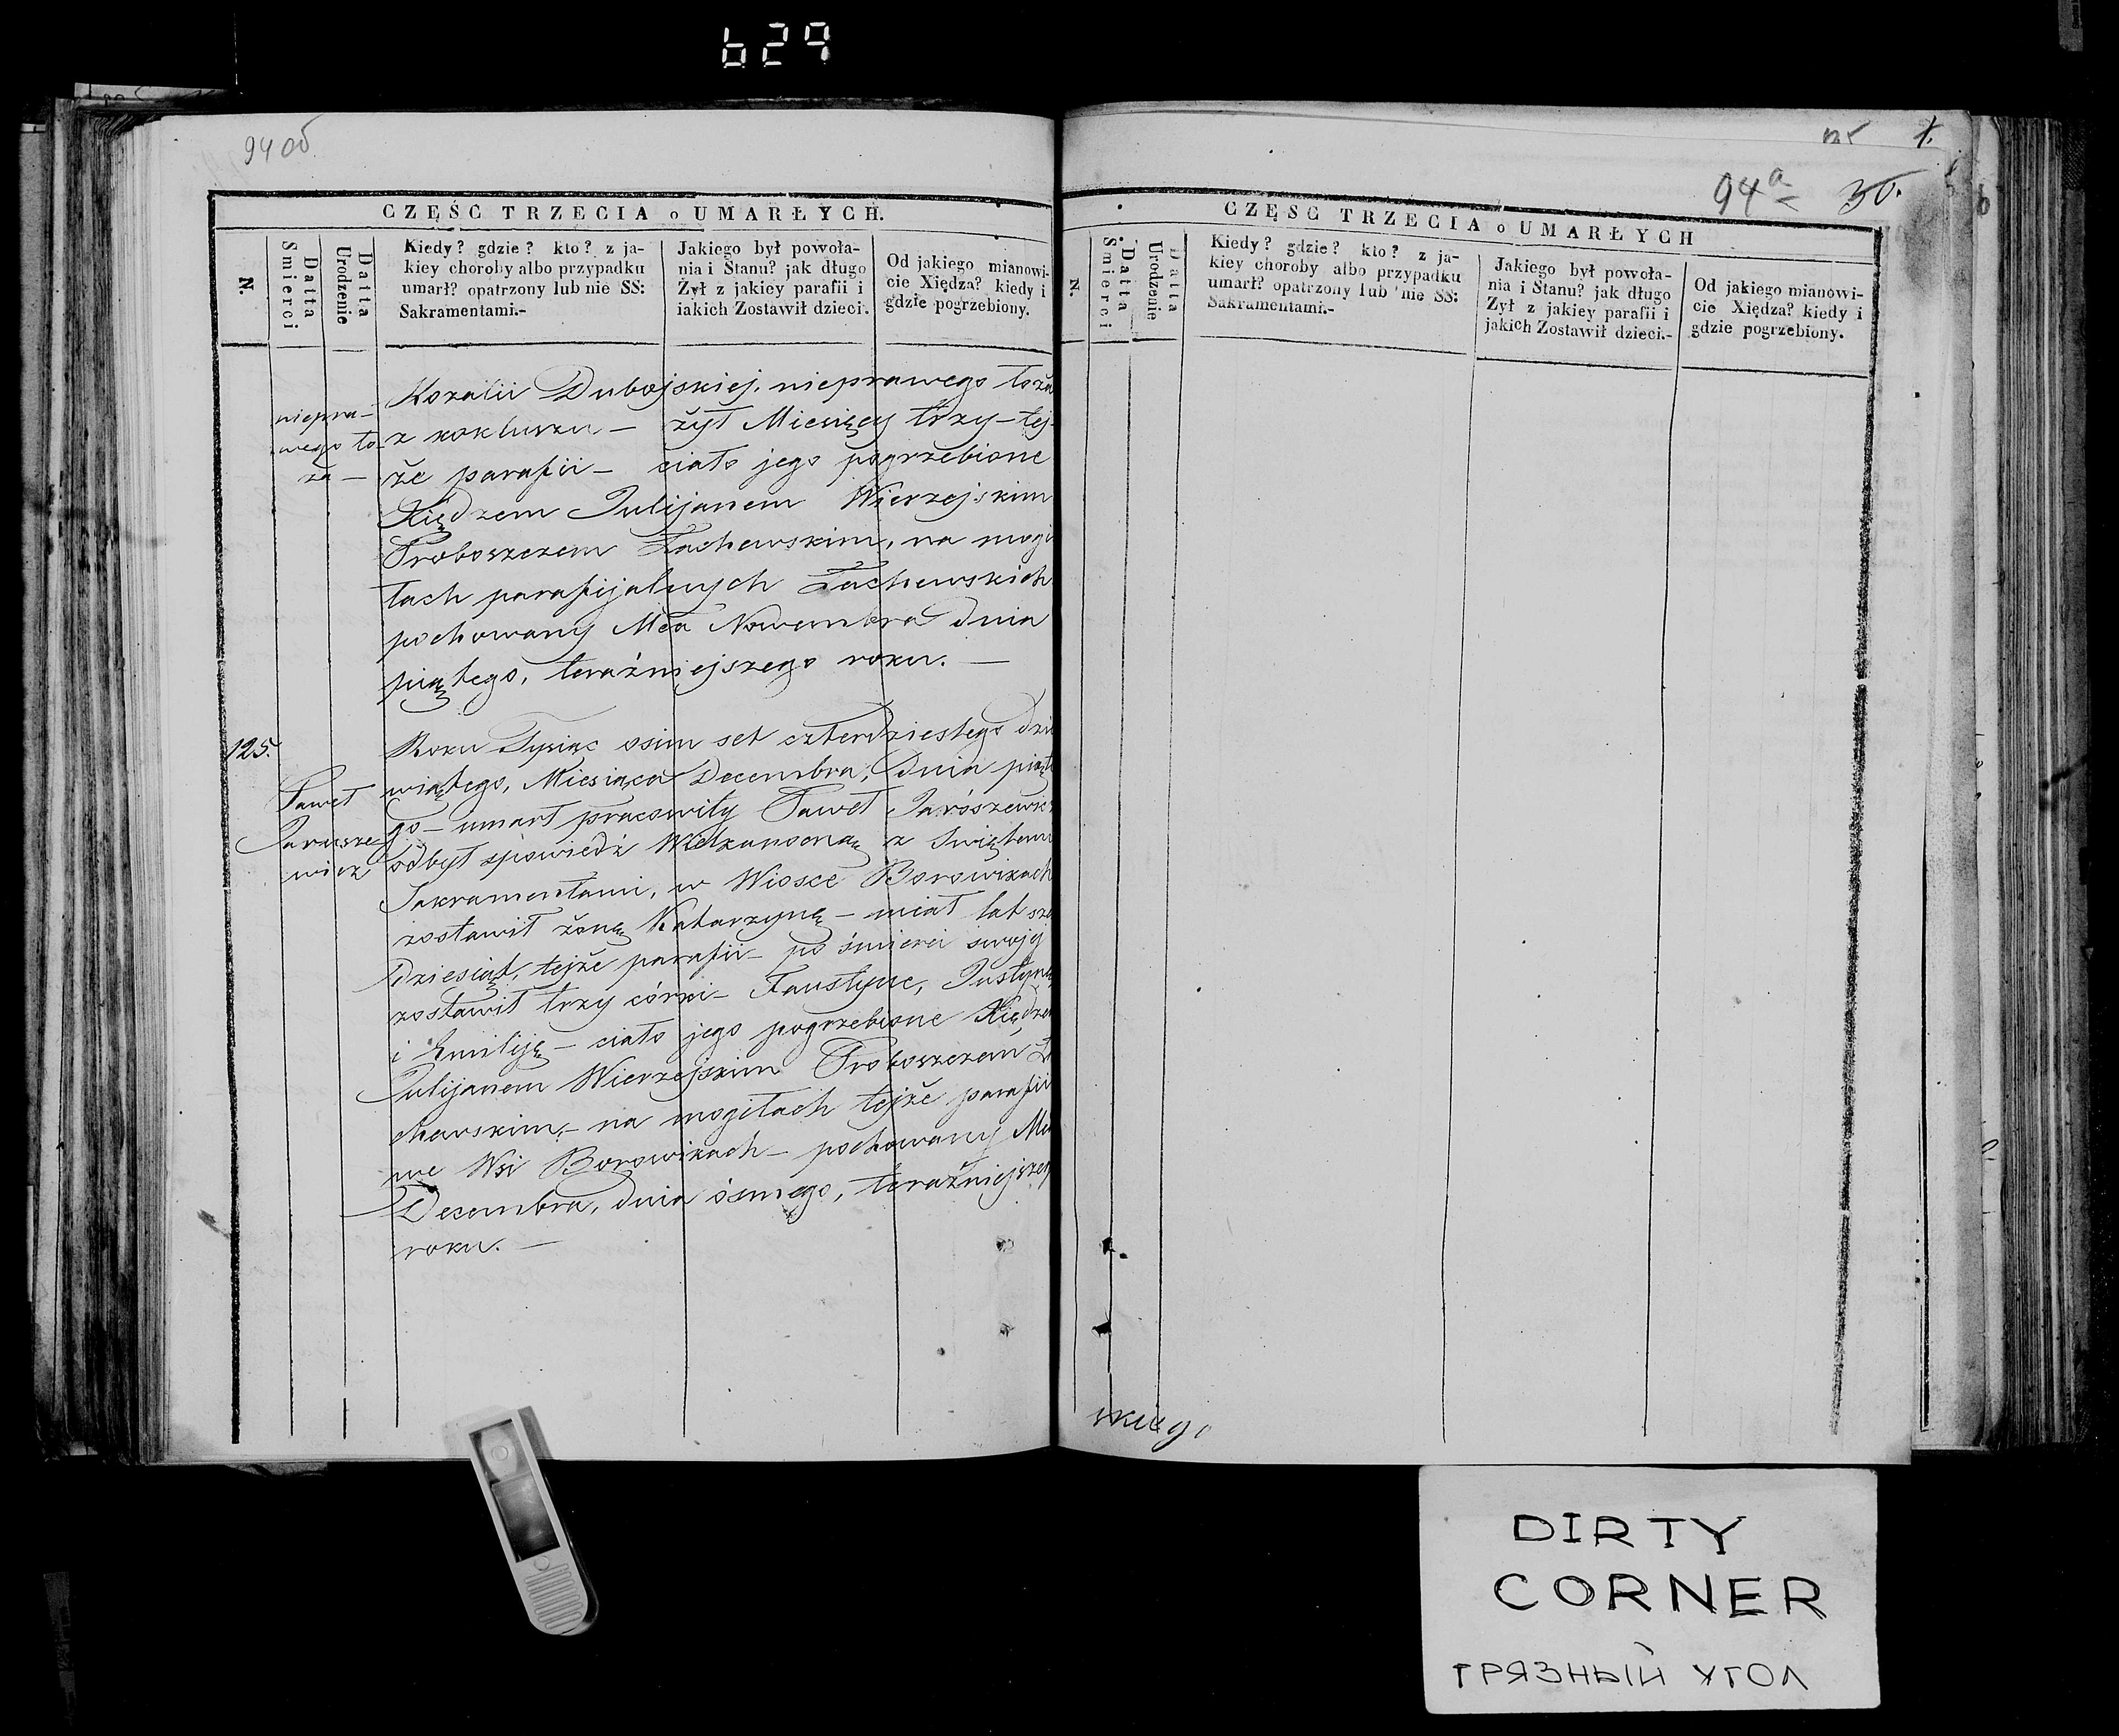 629
94 об
CZĘŚC TRZECIA o UMARŁYCH.
N.
Datta Smierci
Datta Urodzenie
Kiedy? gdzie? kto? z ja-
kiey choroby albo przypadku
umarł? opatrzony lub nie SS:
Sakramentami.-
Jakiego był powoła-
nia i Stanu? jak długo
Żył z jakiey parafii i
iakich Zostawił dzieci.
Od jakiego mianowi-
cie Xiędza? kiedy i
gdzie pogrzebiony.
niepra-
wego ło-
ża —
Rozalii Dubojskiej, nieprawego łoża
z kokluszu — żył Miesięcy trzy – tej-
że parafii — ciało jego pogrzebione
Xiędzem Julijanem Wierzejskim
Proboszczem Łachewskim, na mogi
łach parafijalnych Łachewskich
pochowany Mca Nowembra dnia
piątego, teraźniejszego roku. —
125.
Paweł
Jarusze-
wicz
Roku Tysiąc osim set czterdziestego dzie
wiątego, Miesiąca Decembra, Dnia piąte
go — umarł pracowity Paweł Jarószewicz
odbył spowiedź Wielkanocną z Swiętemi
Sakramentami, w Wiosce Borowikach
zostawił żonę Katarzynę — miał lat sze
dziesiąt, tejże parafii — po śmierci swojej
zostawił trzy córki — Faustynę, Justynę
i Emiliję — ciało jego pogrzebione Xiędzem
Julijanem Wierzejskim Proboszczem Ła
chewskim, — na mogiłach tejże parafii
we Wsi Borowikach — pochowany Mca
Decembra, dnia ósmego, teraźniejszego
roku. —
94a 30.
CZĘSC TRZECIA o UMARŁYCH
N.
Datta Smierci
Datta Urodzenie
Kiedy? gdzie? kto? z ja-
kiey choroby albo przypadku
umarł? opatrzony lub nie SS:
Sakramentami.-
Jakiego był powoła-
nia i Stanu? jak długo
Żył z jakiey parafii i
jakich Zostawił dzieci.-
Od jakiego mianowi-
cie Xiędza? kiedy i
gdzie pogrzebiony.
DIRTY
CORNER
ГРЯЗНЫЙ УГОЛ